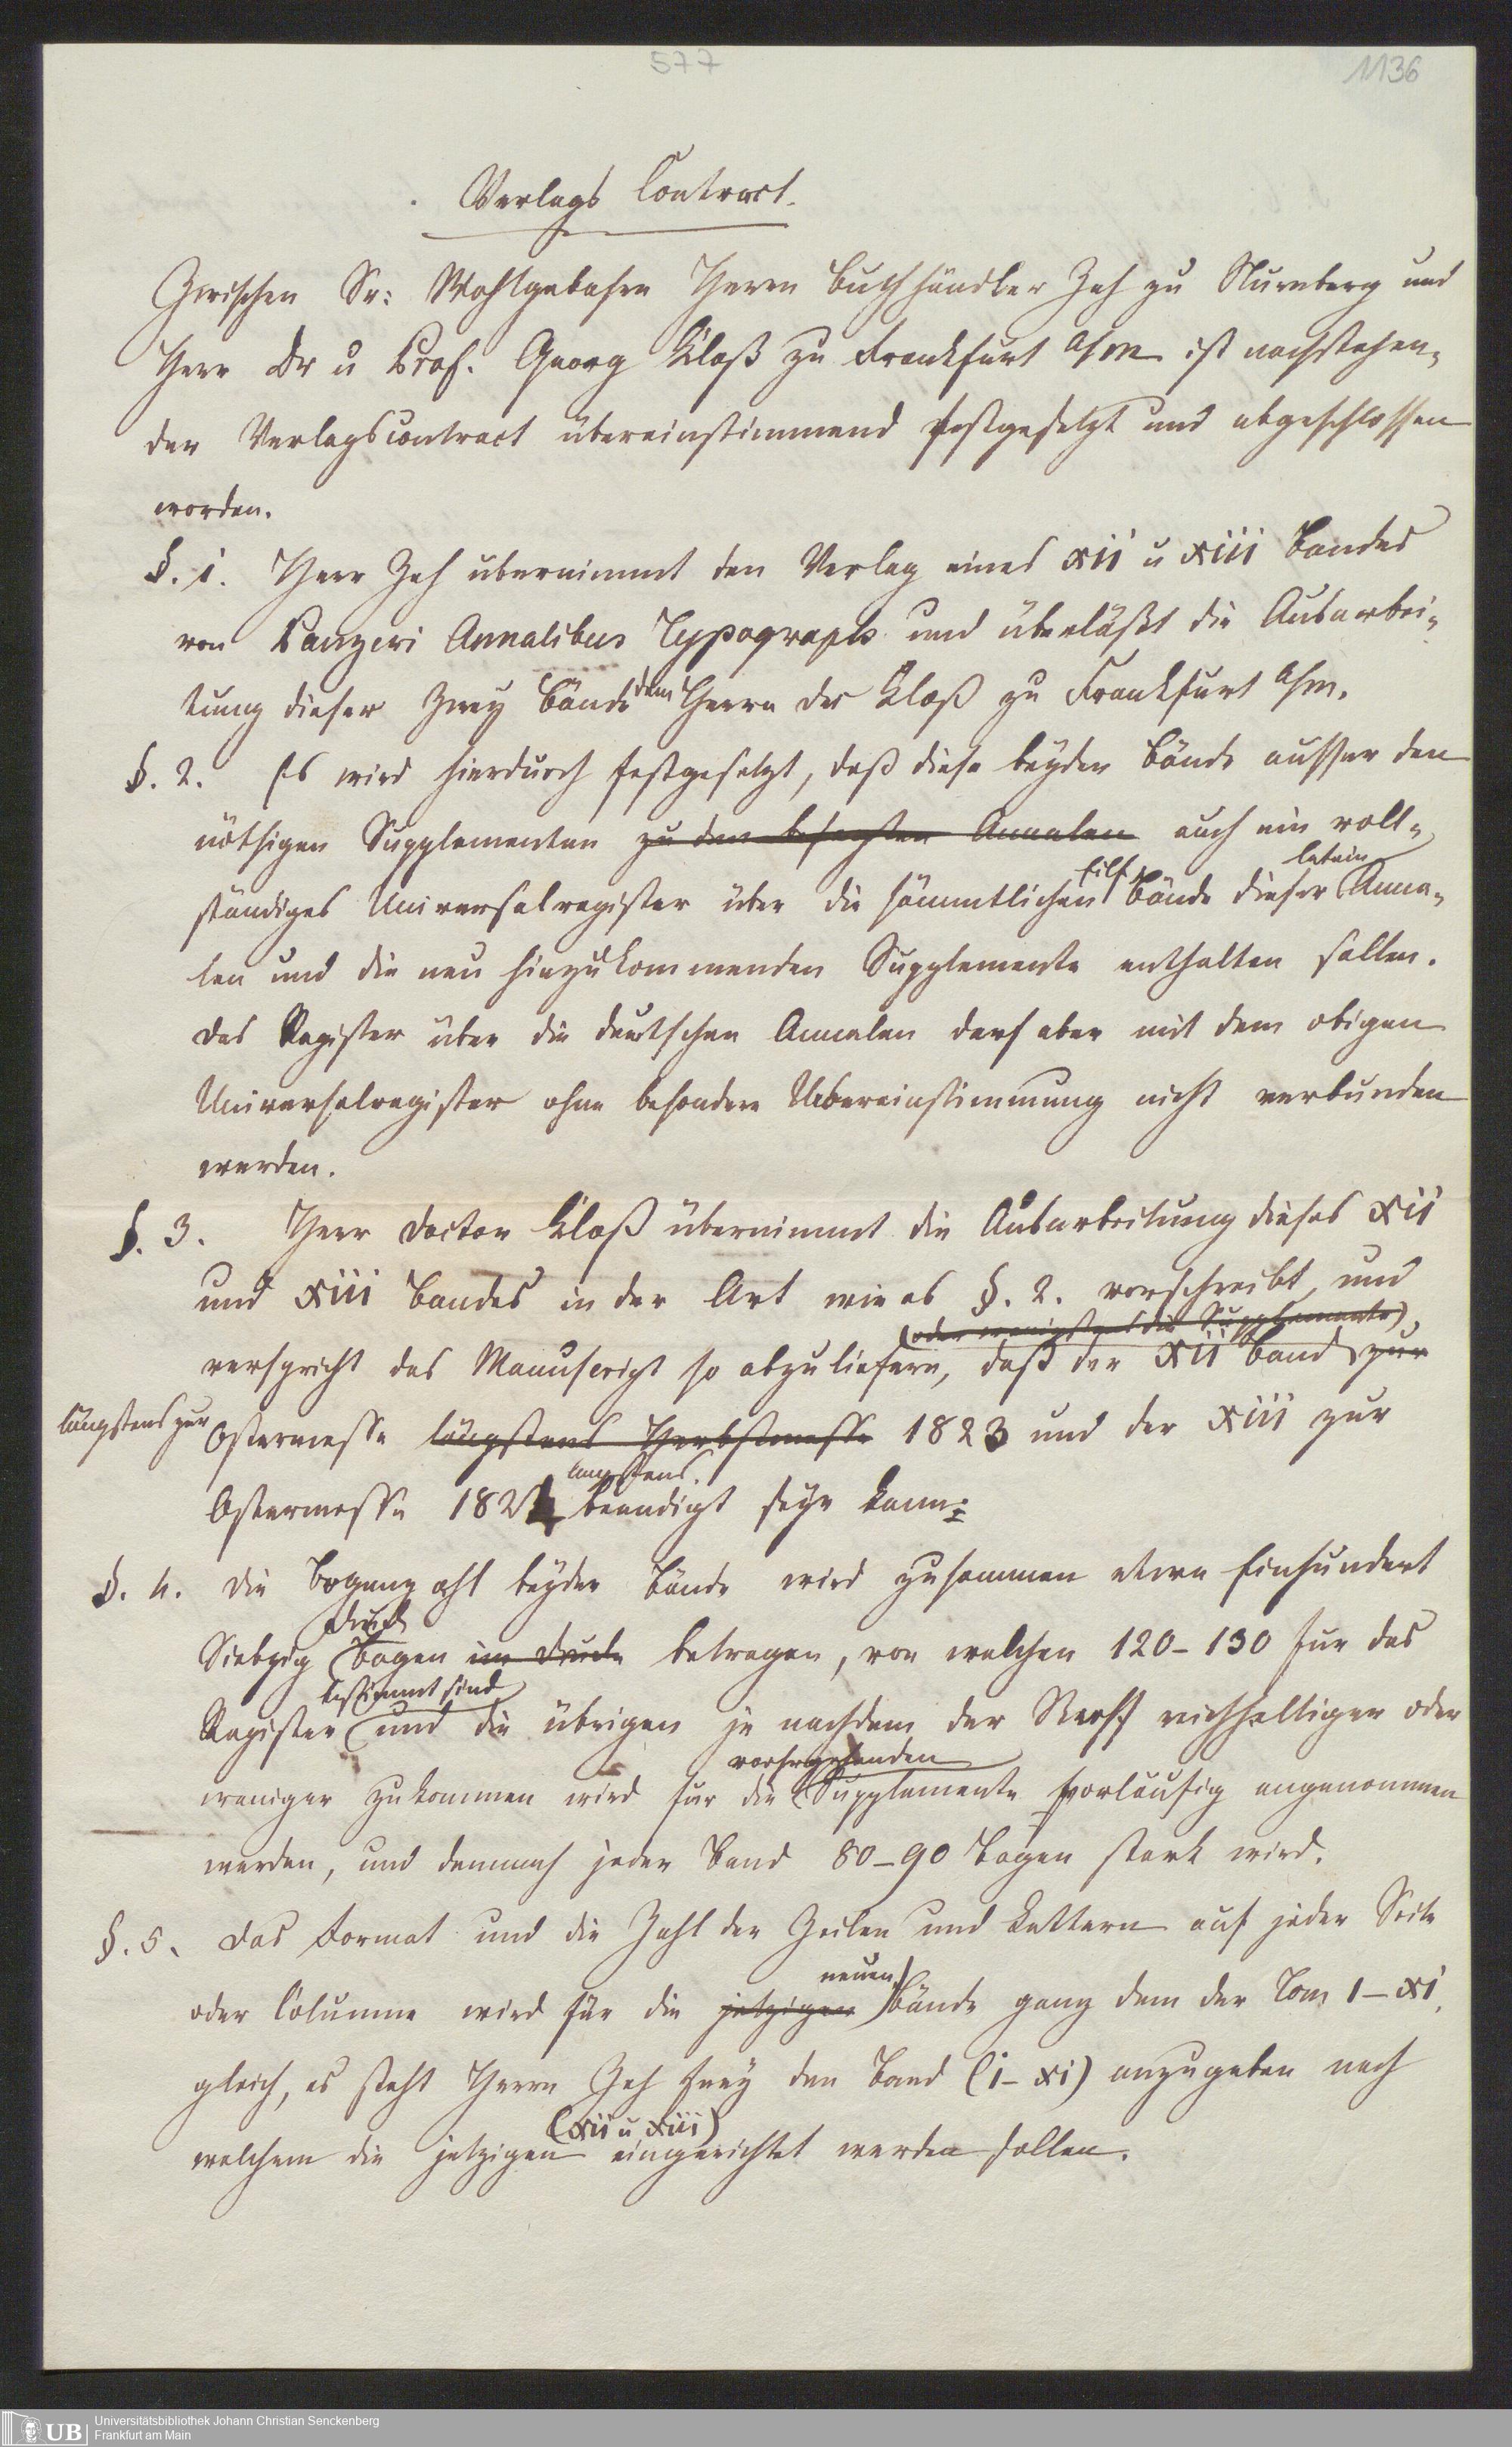 577
1136
Verlags Contract.
Zwischen Sr: Wohlgebohrn Herrn Buchhändler Zeh zu Nurnberg und
Herr Dr u Prof. Georg Kloß zu Frankfurt a/m ist nachstehen-
der Verlagscontract übereinstimmend festgesetzt und abgeschlossen
worden.
§. 1. Herr Zeh ubernimmt den Verlag eines XII u XIII Bandes
von Panzeri Annalibus Typograph. und überläßt die Ausarbei-
tung dieser zwey Bände dem Herrn Dr Kloß zu Frankfurt a/m.
§. 2. Es wird hierdurch festgesetzt, daß diese beyden Bände ausser den
nöthigen Supplementen zu den besagten Annalen auch ein voll-
latein
ständiges Universalregister über die sämmtlichen eilf Bände dieser Anna-
len und die neu hinzukommenden Supplemente enthalten sollen.
Das Register über die deutschen Annalen darf aber mit dem obigen
Universalregister ohne besondere Uebereinstimmung nicht verbunden
werden.
§. 3. Herr Doctor Kloß übernimmt die Ausarbeitung dieses XII
und XIII Bandes in der Art wie es §. 2. vorschreibt, und
(oder wenigstens die Supplemente)
verspricht das Manuscript so abzuliefern, daß der XII Band zur
längstens zur Ostermesse längstens Herbstmesse 1823 und der XIII zur
langstens
Ostermesse 1824 beendigt seyn kann.
§. 4. Die Bogenzahl beyder Bände wird zusammen etwa Einhundert
Druck
Siebzig Bogen im Drucke betragen, von welchen 120-130 fur das
bestimmt sind
Register und die übrigen je nachdem der Stoff reichhaltiger oder
vorhergehenden
weniger zukommen wird fur die Supplemente vorläufig angenommen
werden, und demnach jeder Band 80-90 Bogen stark wird.
§. 5. Das Format und die Zahl der Zeilen und Lettern auf jeder Seite
neuen
oder Columne wird für die jetzigen Bände ganz dem der Tom I-XI.
gleich, es steht Herrn Zeh frey den Band (I-XI) anzugeben nach
(XII u XIII)
welchem die jetzigen eingerichtet werden sollen.
UB
Universitätsbibliothek Johann Christian Senckenberg
Frankfurt am Main